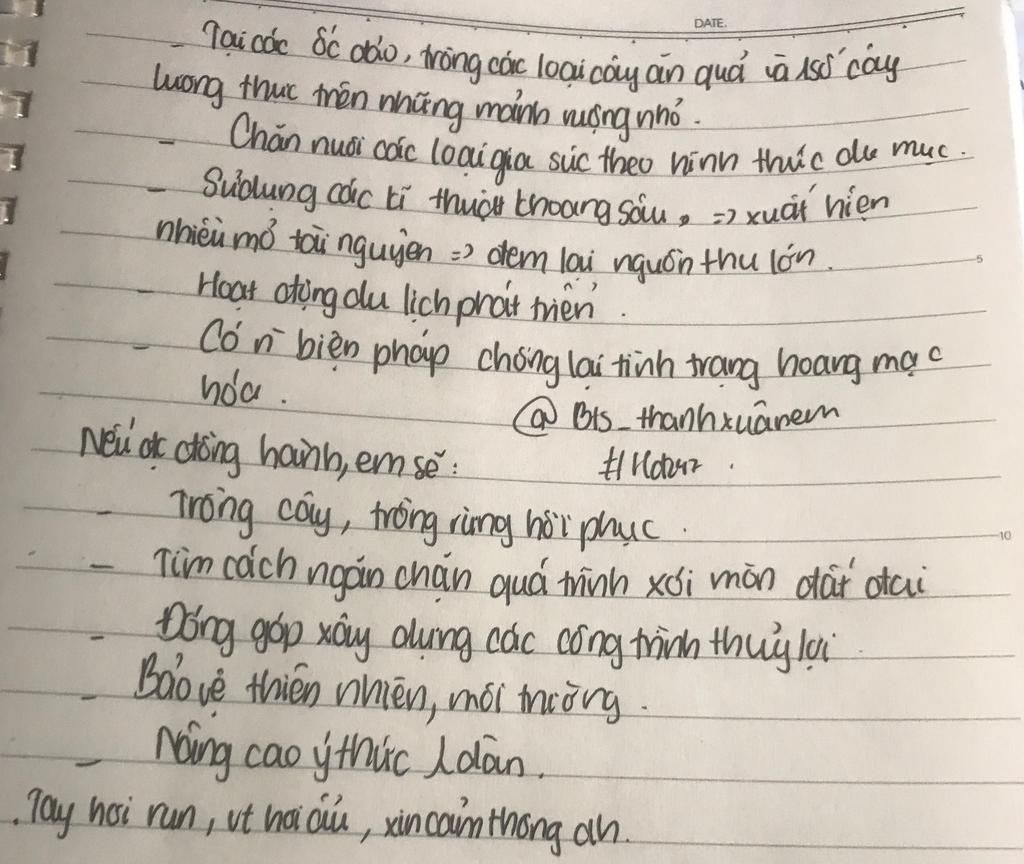 DATE.
- Tại các ốc đảo, trồng các loại cây ăn quả và 1 số cây
lương thực trên những mảnh ruộng nhỏ.
- Chăn nuôi các loại gia súc theo hình thức du mục.
- Sử dụng các kĩ thuật khoang sâu, => xuất hiện
nhiều mỏ tài nguyên => đem lại nguồn thu lớn.
5
- Hoạt động du lịch phát triển.
- Có n~ biện pháp chống lại tình trạng hoang mạc
hóa.
@ Bts_thanhxuânem
Nếu đc đồng hành, em sẽ:
- Trồng cây, trồng rừng hồi phục.
10
- Tìm cách ngăn chặn quá trình xói mòn đất đai
- Đóng góp xây dựng các công trình thuỷ lợi.
- Bảo vệ thiên nhiên, môi trường.
- Nâng cao ý thức dân.
. Tay hơi run, vt hơi ẩu, xin cảm thông ah.